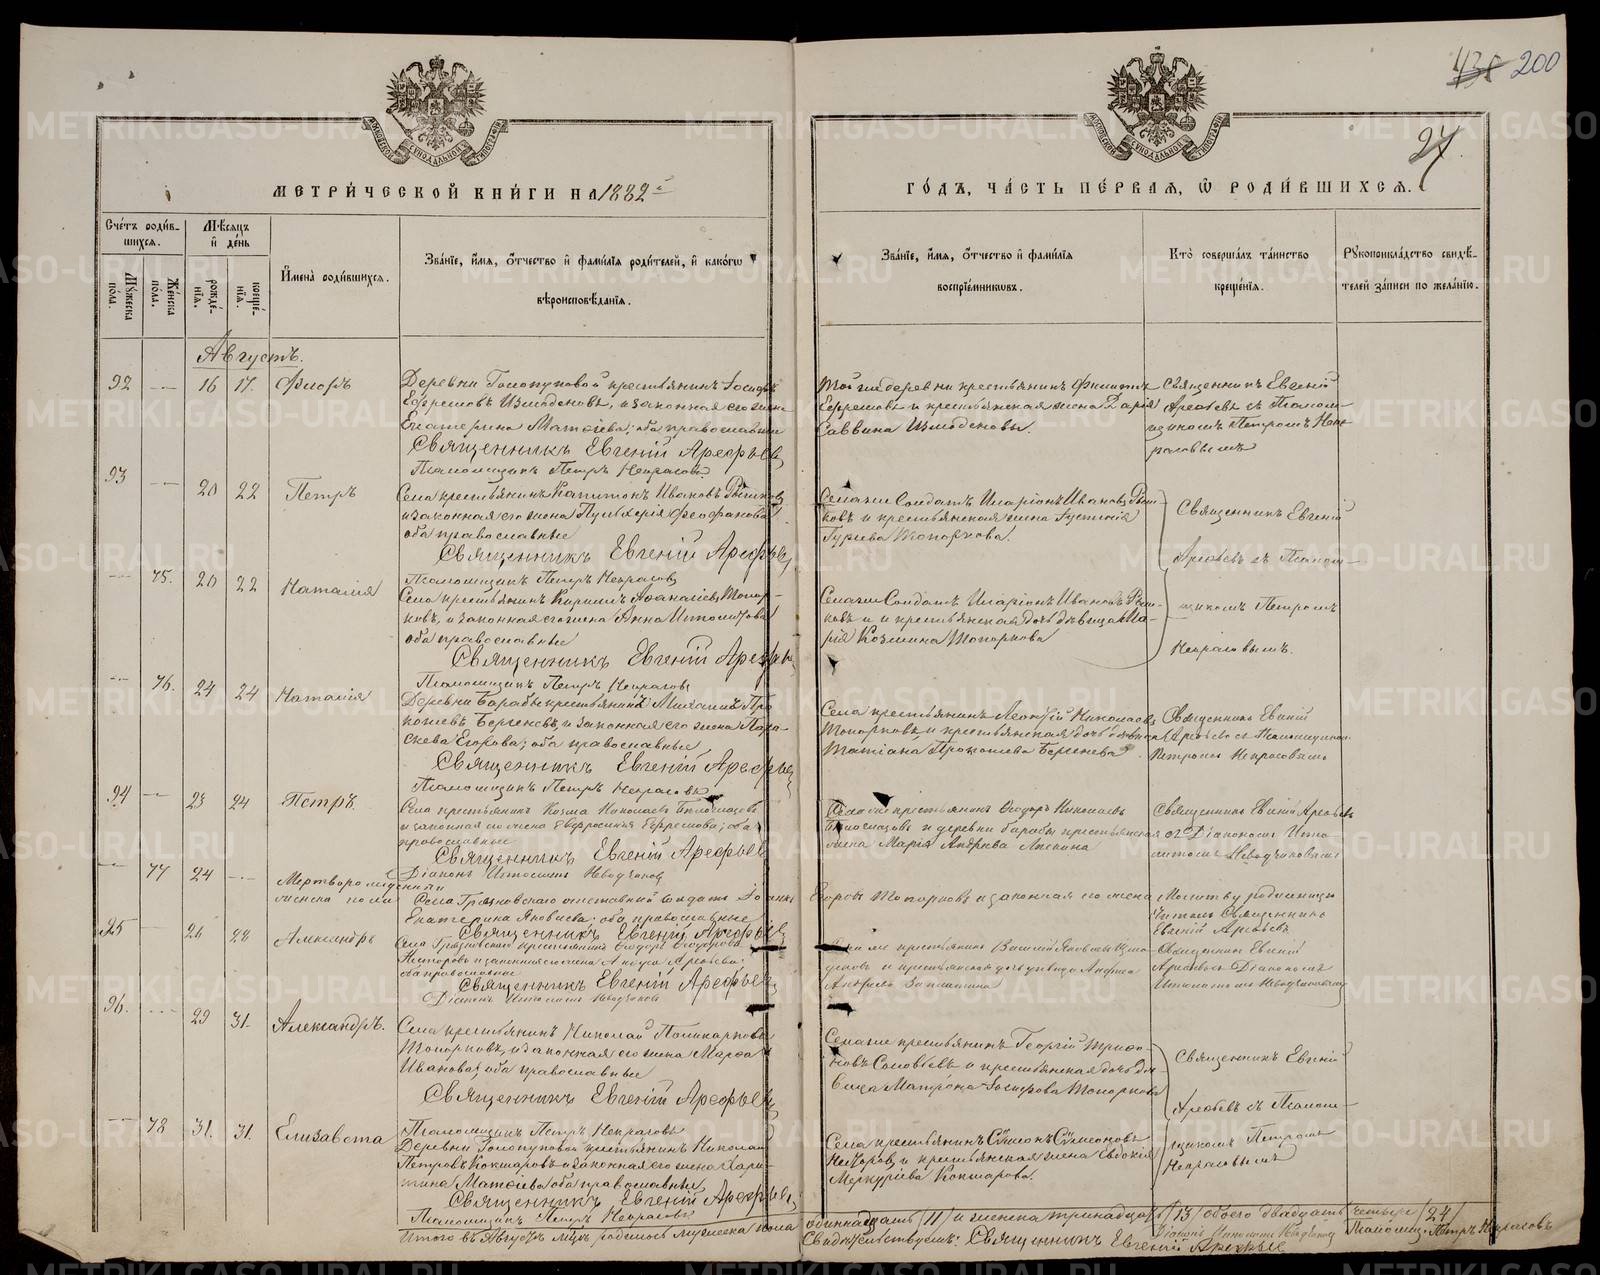 436 200
27
МЕТРИ́ЧЕСКОЙ КНИ́ГИ НА 1882 й
ГО́ДЪ, ЧА́СТЬ ПЕ́РВАЯ, Ѡ РОДИ́ВШИХСЯ.
Сче́тъ роди́в-
шихся.
Мѣ́сяцъ
и҆ де́нь
Мꙋ́жеска по́ла.
Же́нска по́ла.
рожде́-
нїя.
креще́-
нїя.
И҆мена̀ роди́вшихся.
Зва́нїе, и҆́мя, ѻ҆́тчество и҆ фами́лїя роди́телей, и҆ како́гѡ
вѣроисповѣ́данїя.
Зва́нїе, и҆́мя, ѻ҆́тчество и҆ фами́лїя
воспрїе́мникѡвъ.
Кто̀ соверша́лъ та́инство
креще́нїя.
Рꙋкоприкла́дство свидѣ́-
телей за́писи по жела́нїю.
Августъ.
92 — 16 17. Флоръ
Деревни Голопуповой крестьянинъ Іосифъ
Ефремовъ Измоденовъ, и законная его жена
Екатерина Матѳіева; оба православные
Священникъ Евгеній Арефьевъ
Псаломщикъ Петръ Некрасовъ
Той же деревни крестьянинъ Филиппъ
Ефремовъ и крестьянская жена Дарія
Саввина Измоденовы.
Священникъ Евгеній
Арефьевъ съ Псалом-
щикомъ Петромъ Нек-
расовымъ
93 — 20 22 Петръ
Села крестьянинъ Капитонъ Ивановъ
и законная его жена Пульхерія Ѳеофанова
оба православные
Священникъ Евгеній Арефьевъ
Псаломщикъ Петръ Некрасовъ
Села же Солдатъ Иларіонъ Ивановъ
ковъ и крестьянская жена Іустинія
Гурьева Топоркова.
Священникъ Евгеній
Арефьевъ съ Псалом-
щикомъ Петромъ
Некрасовымъ.
— 75. 20 22 Наталія
Села крестьянинъ Кириллъ Аѳанасіевъ Топор-
ковъ, и законная его жена Анна Ипполитова
оба православные
Священникъ Евгеній Арефьевъ
Псаломщикъ Петръ Некрасовъ
Села же Солдатъ Иларіонъ Ивановъ
ковъ и крестьянская дочь дѣвица Ма-
рія Козмина Топоркова
— 76. 24 24 Наталія
Деревни Барабы крестьянинъ Михаилъ Про-
копьевъ Берсеневъ и законная его жена Пара-
скева Егорова; оба православные
Священникъ Евгеній Арефьевъ
Псаломщикъ Петръ Некрасовъ
Села крестьянинъ Леонтій Николаевъ
Топорковъ и крестьянская дочь дѣвица
Татіана Прокопьева Берсенева.
Священникъ Евгеній
Арефьевъ съ Псаломщикомъ
Петромъ Некрасовымъ
94 — 23 24 Петръ.
Села крестьянинъ Козма Николаевъ Бѣлоглазовъ
и законная его жена Евфросинія Ефремова; оба
православные
Священникъ Евгеній Арефьевъ
Діаконъ Ипполитъ Неводчиковъ
Села же крестьянинъ Ѳедоръ Николаевъ
Бѣлоглазовъ и деревни Барабы крестьянская
жена Марія Андреева
Священникъ Евгеній Арефьевъ
съ Діакономъ Иппо-
литомъ Неводчиковымъ
— 77 24 — Мертворожденный
женска пола
Села Грязновскаго отставной солдатъ Егоровъ Топорковъ и законная его жена
Екатерина Яковлева; оба православные
Священникъ Евгеній Арефьевъ
Молитву родильницѣ
читалъ Священникъ
Евгеній Арефьевъ
95 — 26 28 Александръ
Села Грязновскаго крестьянинъ Ѳеодоръ Ѳеодоровъ
и законная его жена Арефьева;
оба православные
Священникъ Евгеній Арефьевъ
Діаконъ Ипполитъ Неводчиковъ
Села же крестьянинъ Василій Яковлевъ Измо-
деновъ и крестьянская дочь дѣвица
Священникъ Евгеній
Арефьевъ съ Діакономъ
Ипполитомъ Неводчиковымъ
96. — 29 31. Александръ.
Села крестьянинъ Николай Поликарповъ
Топорковъ, и законная его жена Марѳа
Иванова; оба православные
Священникъ Евгеній Арефьевъ
Псаломщикъ Петръ Некрасовъ
Села же крестьянинъ Георгій Трифо-
новъ Соловьевъ и крестьянская дочь дѣ-
вица Матрона Іосифова Топоркова
Священникъ Евгеній
Арефьевъ съ Псалом-
щикомъ Петромъ
Некрасовымъ
— 78 31. 31. Елизавета
Деревни Голопуповой крестьянинъ Николай
Петровъ Кокшаровъ и законная его жена Хари-
тина Матѳіева оба православные
Священникъ Евгеній Арефьевъ
Псаломщикъ Петръ Некрасовъ
Села крестьянинъ Сѵмеонъ Сѵмеоновъ
и крестьянская жена Евдокія
Меркуріева Кокшарова.
Итого въ Августѣ мцѣ родилось мужеска пола одиннадцать /11/ и женска тринадцать /13/ обоего двадцать четыре /24/
Свидѣтельствуемъ: Священникъ Евгеній Арефьевъ
Діаконъ Ипполитъ Неводчиковъ
Псаломщ. Петръ Некрасовъ
METRIKI.GASO-URAL.RU